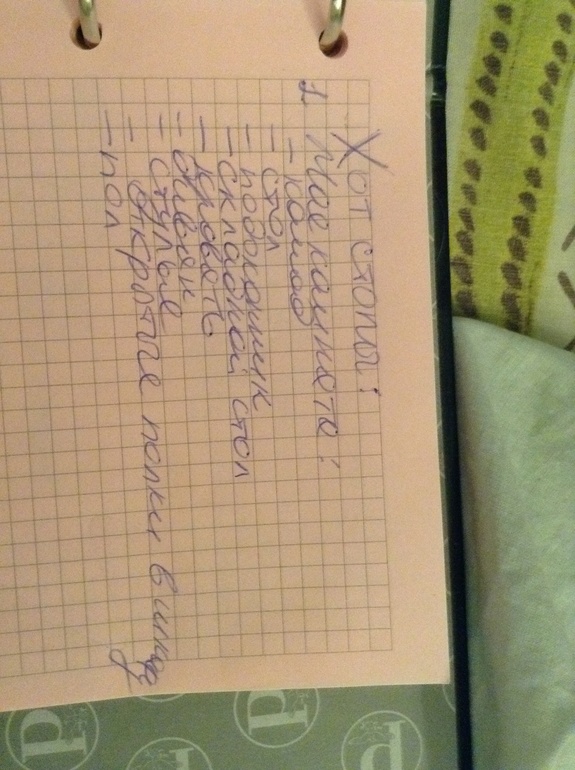 Хот споты:
1 Моя комната:
- комод
- стол
- подоконник
- складной стол
- кровать
- диван
- стулья
- открытые полки в шкафу
- пол